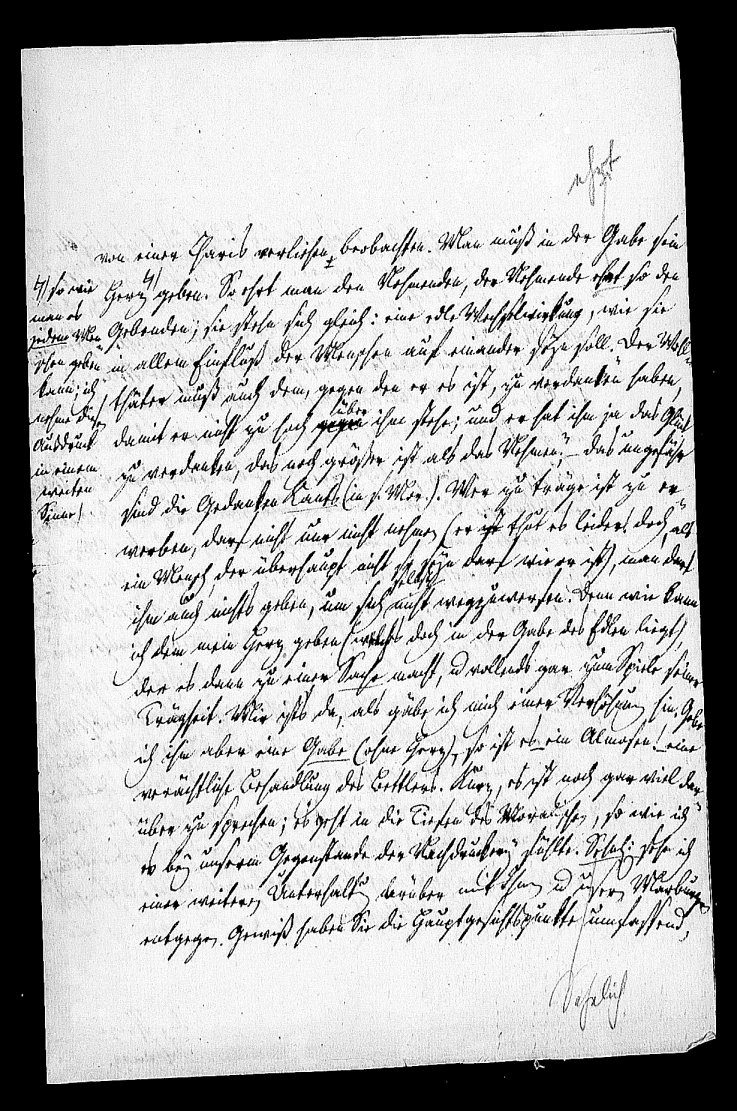 ehrt
von einer Charis verliehen, beobachten. Man muß in der Gabe sein
Herz 4) geben. So ehrt man den Nehmenden, der Nehmende ehrt so den
Gebenden; sie stehn sich gleich: eine edle Wechselwirkung, wie sie
in allem Einfluß der Menschen auf einander seyn soll. Der Wohl-
thäter muß auch dem, gegen den er es ist, zu verdanken haben,
damit er nicht zu hoch gegen über ihm stehe; und er hat ihm ja das Glück
zu verdanken, das noch größer ist als das Nehmen." – Das ungefähr
sind die Gedanken Kants (in s. Mor.). Wer zu träge ist zu er-
werben, darf nicht nur nicht nehmen (er ist thut es leider doch, als
ein Mensch, der überhaupt nicht so seyn darf wie er ist), man darf
ihm auch nichts geben, um sich selbst nicht wegzuwerfen. Denn wie kann
ich dem mein Herz geben (welches doch in der Gabe des Edlen liegt),
der es dann zu einer Sache macht, u vollends gar zum Spiele seiner
Trägheit. Mir ists da, als gäbe ich mich einer Verhöhnung hin. Gebe
ich ihm aber eine Gabe (ohne Herz), so ist es ein Almosen! eine
verächtliche Behandlung des Bettlers. Kurz, es ist noch gar viel dar-
über zu sprechen; es geht in die Tiefen des Moralischen, so wie ich
es bey unserm Gegenstande der Nachdruckerey fühlte. Sehnl: sehe ich
einer weitern Unterhaltung darüber mit Ihnen u unsern Marburgern
entgegen. Gewiß haben Sie die Hauptgesichtspunkte umfassend,
4) so wie
man es
jedem Men-
schen geben
kann; ich
nehme diesen
Ausdruck
in einem
weiten
Sinne)
Sehnlich